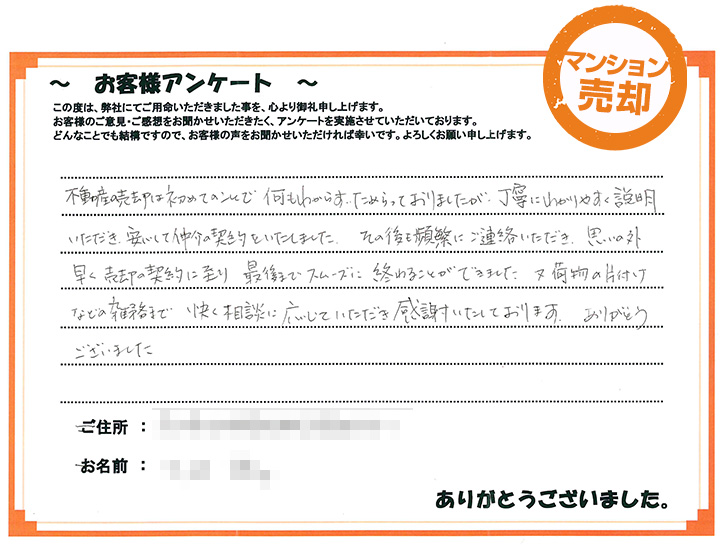 マンション
売却
〜 お客様アンケート 〜
この度は、弊社にてご用命いただきました事を、心より御礼申し上げます。
お客様のご意見・ご感想をお聞かせいただきたく、アンケートを実施させていただいております。
どんなことでも結構ですので、お客様の声をお聞かせいただければ幸いです。よろしくお願い申し上げます。
不動産の売却は初めてのことで 何もわからず、ためらっておりましたが、丁寧にわかりやすく説明
いただき、安心して仲介の契約をいたしました。 その後も頻繁にご連絡いただき、思いの外
早く売却の契約に至り 最後までスムーズに 終わることができました 又荷物の片付け
などの雑務まで 快く相談に応じていただき感謝いたしております。 ありがとう
ございました
ご住所 :
お名前 :
ありがとうございました。